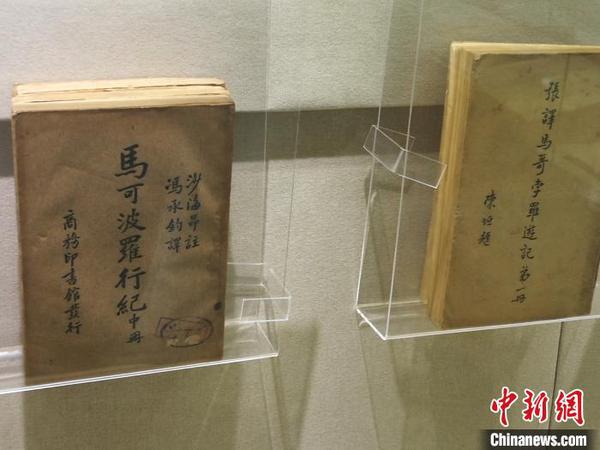 沙海昂註
馮承鈞譯
馬可波羅行紀中冊
商務印書館發行
張譯馬哥孛羅遊記第一冊
陳垣題
中新網
Chinanews.com